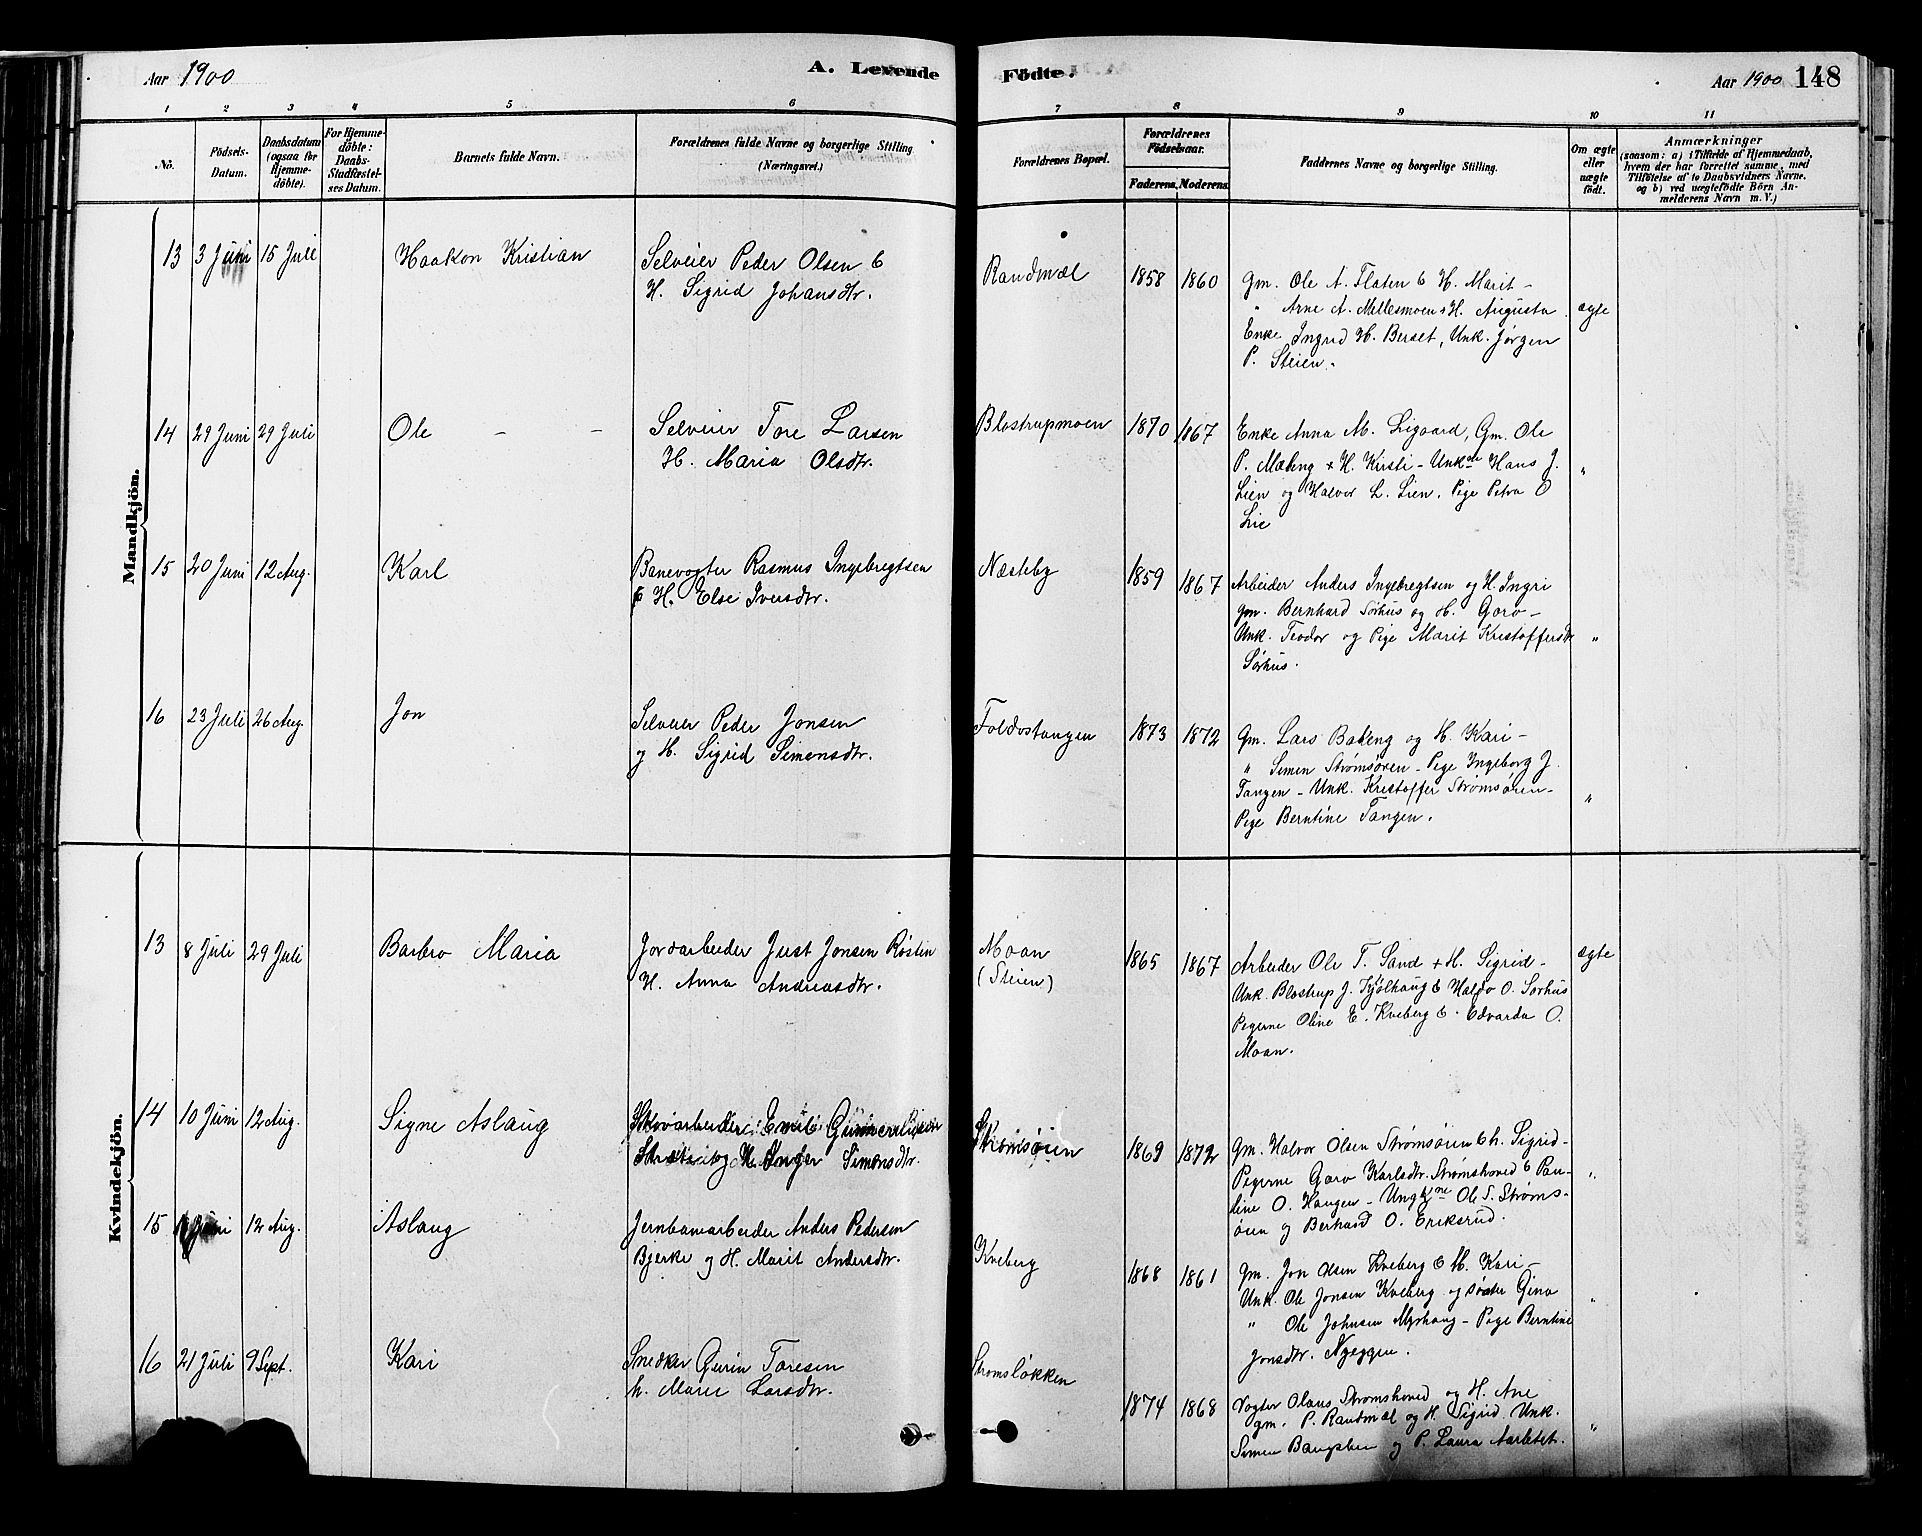 Aar 1900
A. Levende
Födte.
Aar 1900 148
1 2 3 4 5 6 7 8 9 10 11
No.
Födsels-
Datum.
Daabsdatum
(ogsaa for
Hjemme-
döbte).
For Hjemme-
döbte:
Daabs-
Stadfæstel-
ses Datum.
Barnets fulde Navn.
Forældrenes fulde Navne og borgerlige Stilling
(Næringsvei.)
Forældrenes Bopæl.
Forældrenes
Födselsaar.
Faderens. Moderens.
Faddernes Navne og borgerlige Stilling.
Om ægte
eller
uægte
födt.
Anmærkninger
(saasom: a) i Tilfælde af Hjemmedaab,
hvem der har forrettet samme, med
Tilföielse af to Daabsvidners Navne.
og b) ved uægtefödte Börn An-
melderens Navn m. V.)
Mandkjön.
13 3 Juni 15 Juli Haakon Kristian
Selveier Peder Olsen &
H. Sigrid Johansdtr.
Randmæl 1858 1860
Gm. Ole A. Flaten & H. Marit –
" Arne A. Mellesmoen & H. Augusta
Enke Ingrid H. Berset, Unk. Jørgen
P. Steien.
ægte
14 29 Juni 29 Juli Ole – –
Selveier Tore Larsen
H. Maria Olsdtr.
Blostrupmoen 1870 1867
Enke Anna M. Ligaard, Gm. Ole
P. Mæhng + H. Kirsti – Unkne Hans J.
Lien og Halvor L. Lien. Pige Petra O
Lie
"
15 20 Juni 12 Aug. Karl
Banevogter Rasmus Ingebregtsen
& H. Else Iversdtr.
Næsteby 1859 1867
Arbeider Anders Ingebregtsen og H. Ingri
gm. Bernhard Sørhus og H. Goro –
Unk. Teodor og Pige Marit Kristoffersdtr
Sørhus.
"
16 23 Juli 26 Aug. Jon
Selveier Peder Jonsen
og H. Sigrid Simensdtr.
Foldvstangen 1873 1872
Gm. Lars Bakeng og H. Kari –
" Simen Strømsören – Pige Ingeborg J.
Tangen – Unk. Kristoffer Strømsören –
Pige Berntine Tangen.
"
Kvindekjön.
13 8 Juli 29 Juli Barbro Maria
Jordarbeider Just Jonsen Røstin
H. Anna Andreasdtr.
Moan
(Steien)
1865 1867
Arbeider Ole T. Sand + H. Sigrid –
Unk. Blostrup J. Kjølhaug & Halvo O. Sørhus
Pigerne Oline E. Kveberg & Edvarda O.
Moan.
ægte
14 10 Juni 12 Aug. Signe Aslaug
Skovarbeider Emil
og H. Inger Simensdtr.
Strömsöien 1869 1872
Gm. Halvor Olsen Strømsöien & h. Sigrid –
Pigerne Goro Karlsdtr. Strømshoved & Pau-
line O. Haugen – Ungkne Ole S. Strøms-
öien og Berhard O. Eriksrud.
"
15 Juni 12 Aug. Aslaug
Jernbanearbeider Anders Pedersen
Bjerke og H. Marit Andersdtr.
Kveberg 1868 1861
Gm. Jon Olsen Kveberg & H. Kari –
Unk. Ole Jonsen Kveberg og søster Gina
" Ole Johnsen Myrhaug – Pige Berntine
Jonsdtr. Nyeggen.
"
16 21 Juli 9 Sept. Kari
Snedker Gurin Toresen
h. Marie Larsdtr.
Strømsløkken 1874 1868
Vogter Olaus Strømshoved og H. Ane
gm. P. Randmæl og H. Sigrid. Unk.
Simen Bangshen og P. Laura Aarletet.
"